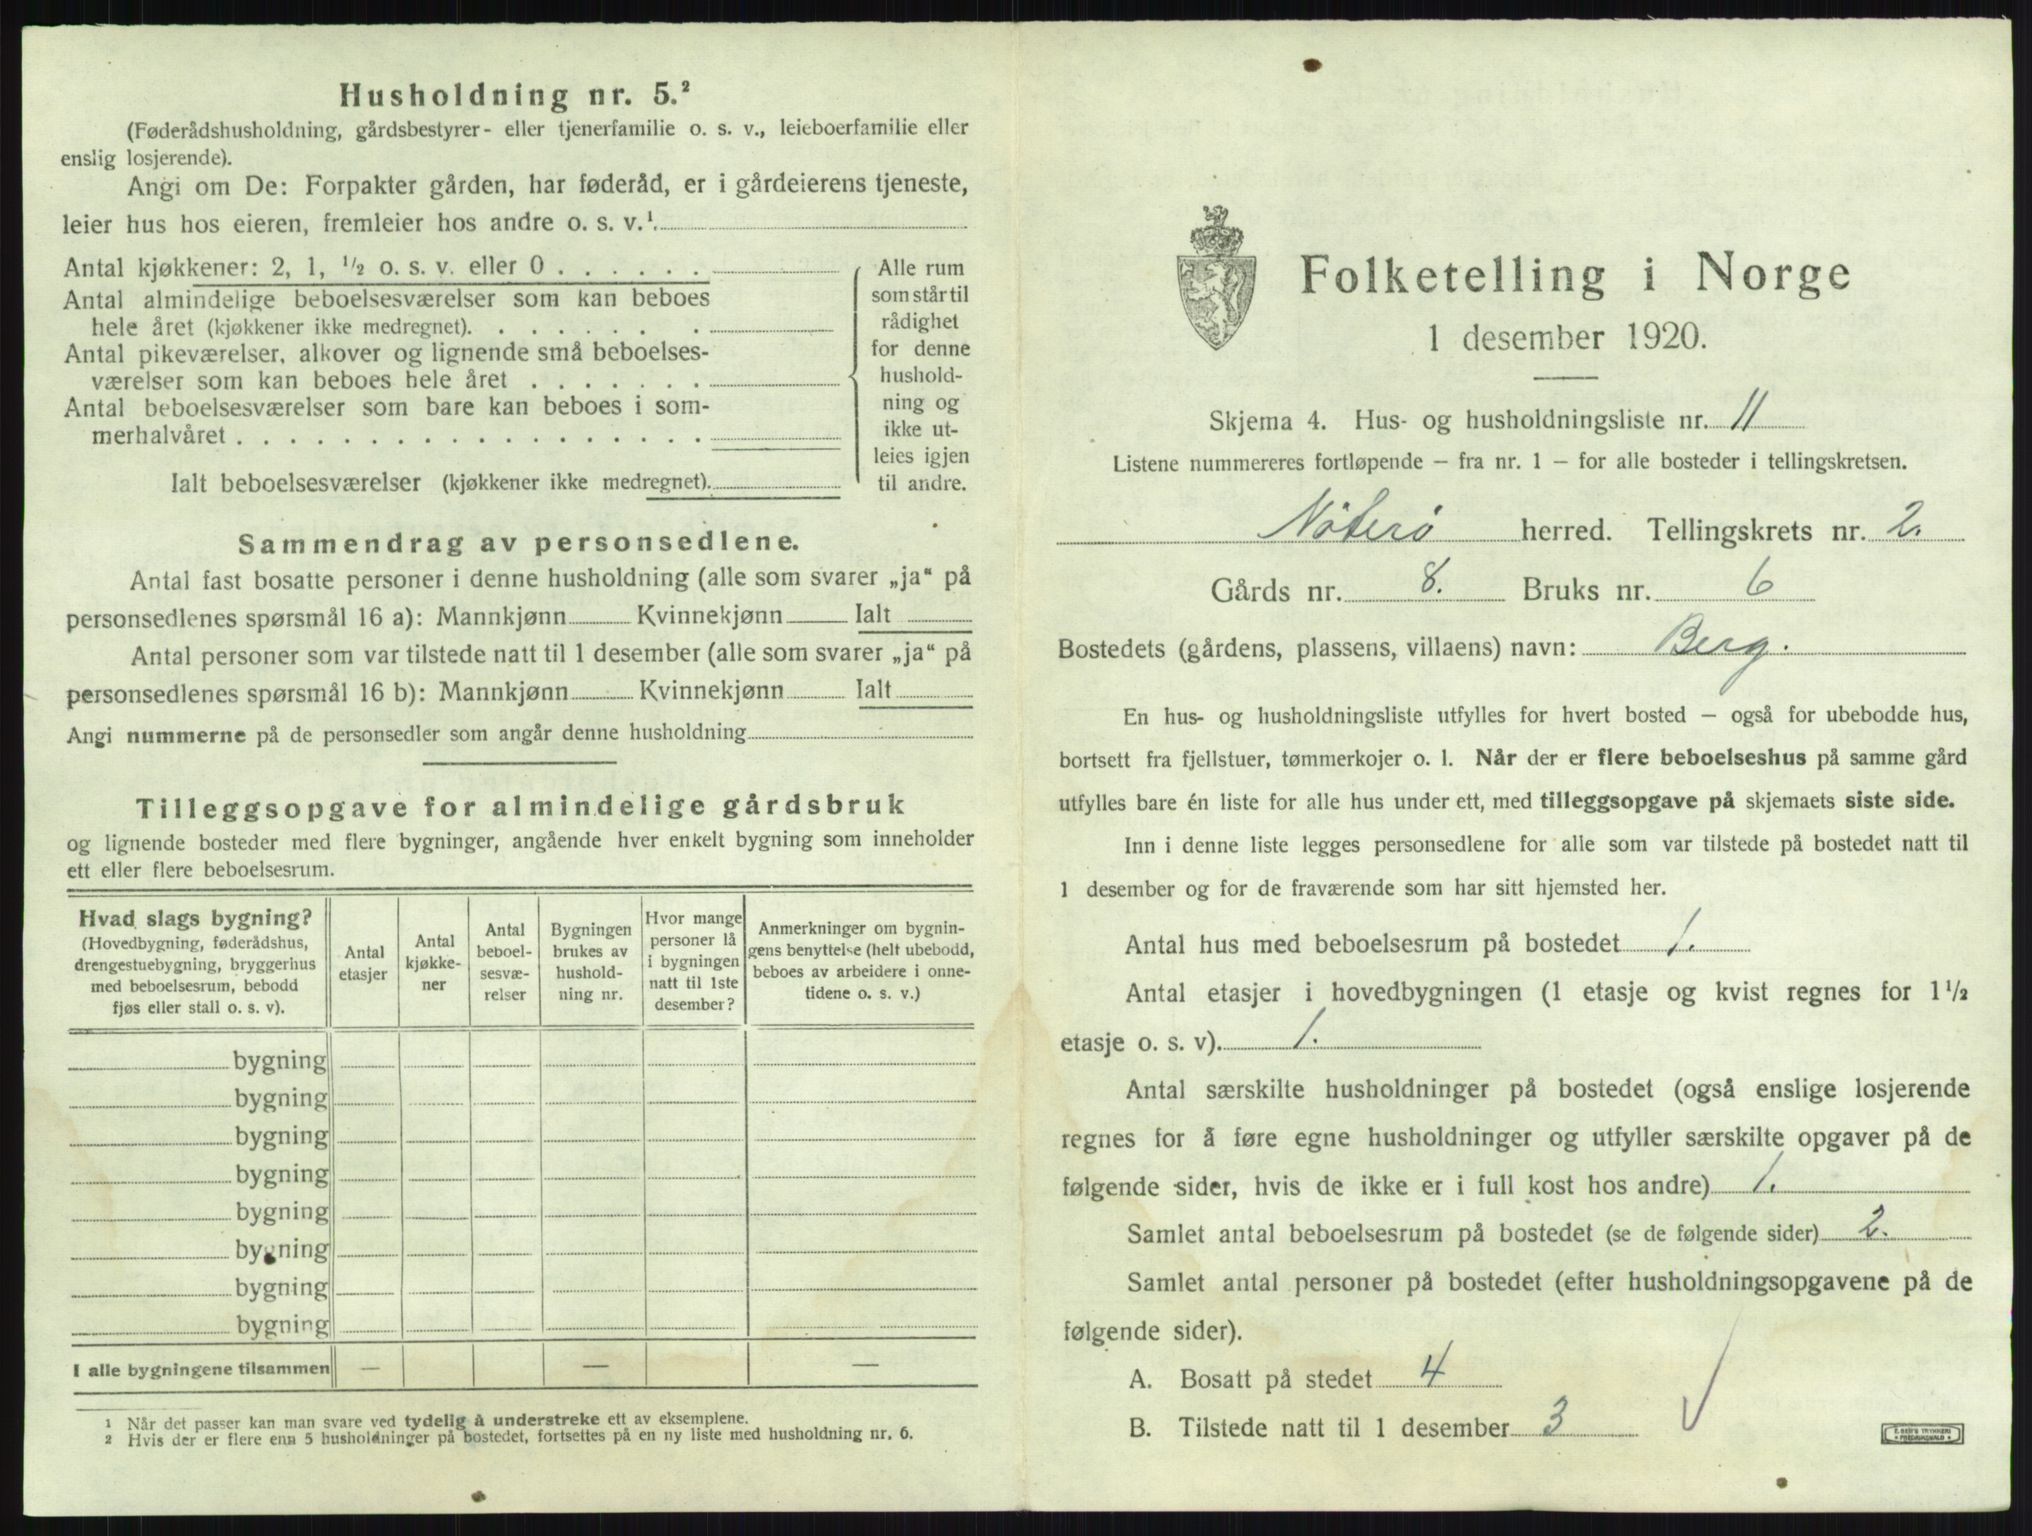 Husholdning nr. 5.²
(Føderådshusholdning, gårdsbestyrer- eller tjenerfamilie o. s. v., leieboerfamilie eller
enslig losjerende).
Angi om De: Forpakter gården, har føderåd, er i gårdeierens tjeneste,
leier hus hos eieren, fremleier hos andre o. s. v.¹.
Antal kjøkkener: 2, 1, ½ o. s. v. eller 0 . . . . . .
Antal almindelige beboelsesværelser som kan beboes
hele året (kjøkkener ikke medregnet). . . . . . . .
Antal pikeværelser, alkover og lignende små beboelses-
værelser som kan beboes hele året . . . . . . .
Antal beboelsesværelser som bare kan beboes i som-
merhalvåret . . . . . . . . . . . . . . . . . .
Ialt beboelsesværelser (kjøkkener ikke medregnet).
Alle rum
som står til
rådighet
for denne
hushold-
ning og
ikke ut-
leies igjen
til andre.
Sammendrag av personsedlene.
Antal fast bosatte personer i denne husholdning (alle som svarer „ja“ på
personsedlenes spørsmål 16 a): Mannkjønn Kvinnekjønn Ialt
Antal personer som var tilstede natt til 1 desember (alle som svarer „ja“ på
personsedlenes spørsmål 16 b): Mannkjønn Kvinnekjønn Ialt
Angi nummerne på de personsedler som angår denne husholdning
Tilleggsopgave for almindelige gårdsbruk
og lignende bosteder med flere bygninger, angående hver enkelt bygning som inneholder
ett eller flere beboelsesrum.
Hvad slags bygning?
(Hovedbygning, føderådshus,
drengestuebygning, bryggerhus
med beboelsesrum, bebodd
fjøs eller stall o. s. v).
Antal
etasjer
Antal
kjøkke-
ner
Antal
beboel-
sesvæ-
relser
Bygningen
brukes av
hushold-
ning nr.
Hvor mange
personer lå
i bygningen
natt til 1ste
desember?
Anmerkninger om bygnin-
gens benyttelse (helt ubebodd,
beboes av arbeidere i onne-
tidene o. s. v.)
bygning
bygning
bygning
bygning
bygning
bygning
bygning
bygning
I alle bygningene tilsammen — — —
¹ Når det passer kan man svare ved tydelig å understreke ett av eksemplene.
² Hvis der er flere enn 5 husholdninger på bostedet, fortsettes på en ny liste med husholdning nr. 6.
Folketelling i Norge
1 desember 1920.
Skjema 4. Hus- og husholdningsliste nr. 11
Listene nummereres fortløpende – fra nr. 1 – for alle bosteder i tellingskretsen.
Nøterø herred. Tellingskrets nr. 2.
Gårds nr. 8. Bruks nr. 6
Bostedets (gårdens, plassens, villaens) navn: Berg.
En hus- og husholdningsliste utfylles for hvert bosted – også for ubebodde hus,
bortsett fra fjellstuer, tømmerkojer o. l. Når der er flere beboelseshus på samme gård
utfylles bare én liste for alle hus under ett, med tilleggsopgave på skjemaets siste side.
Inn i denne liste legges personsedlene for alle som var tilstede på bostedet natt til
1 desember og for de fraværende som har sitt hjemsted her.
Antal hus med beboelsesrum på bostedet 1.
Antal etasjer i hovedbygningen (1 etasje og kvist regnes for 1½
etasje o. s. v). 1.
Antal særskilte husholdninger på bostedet (også enslige losjerende
regnes for å føre egne husholdninger og utfyller særskilte opgaver på de
følgende sider, hvis de ikke er i full kost hos andre) 1.
Samlet antal beboelsesrum på bostedet (se de følgende sider) 2.
Samlet antal personer på bostedet (efter husholdningsopgavene på de
følgende sider).
A. Bosatt på stedet 4
B. Tilstede natt til 1 desember 3